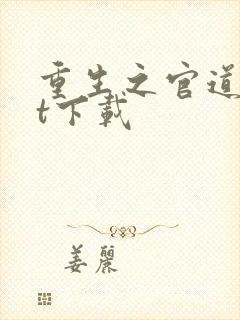 重生之官道
t下载
姜丽